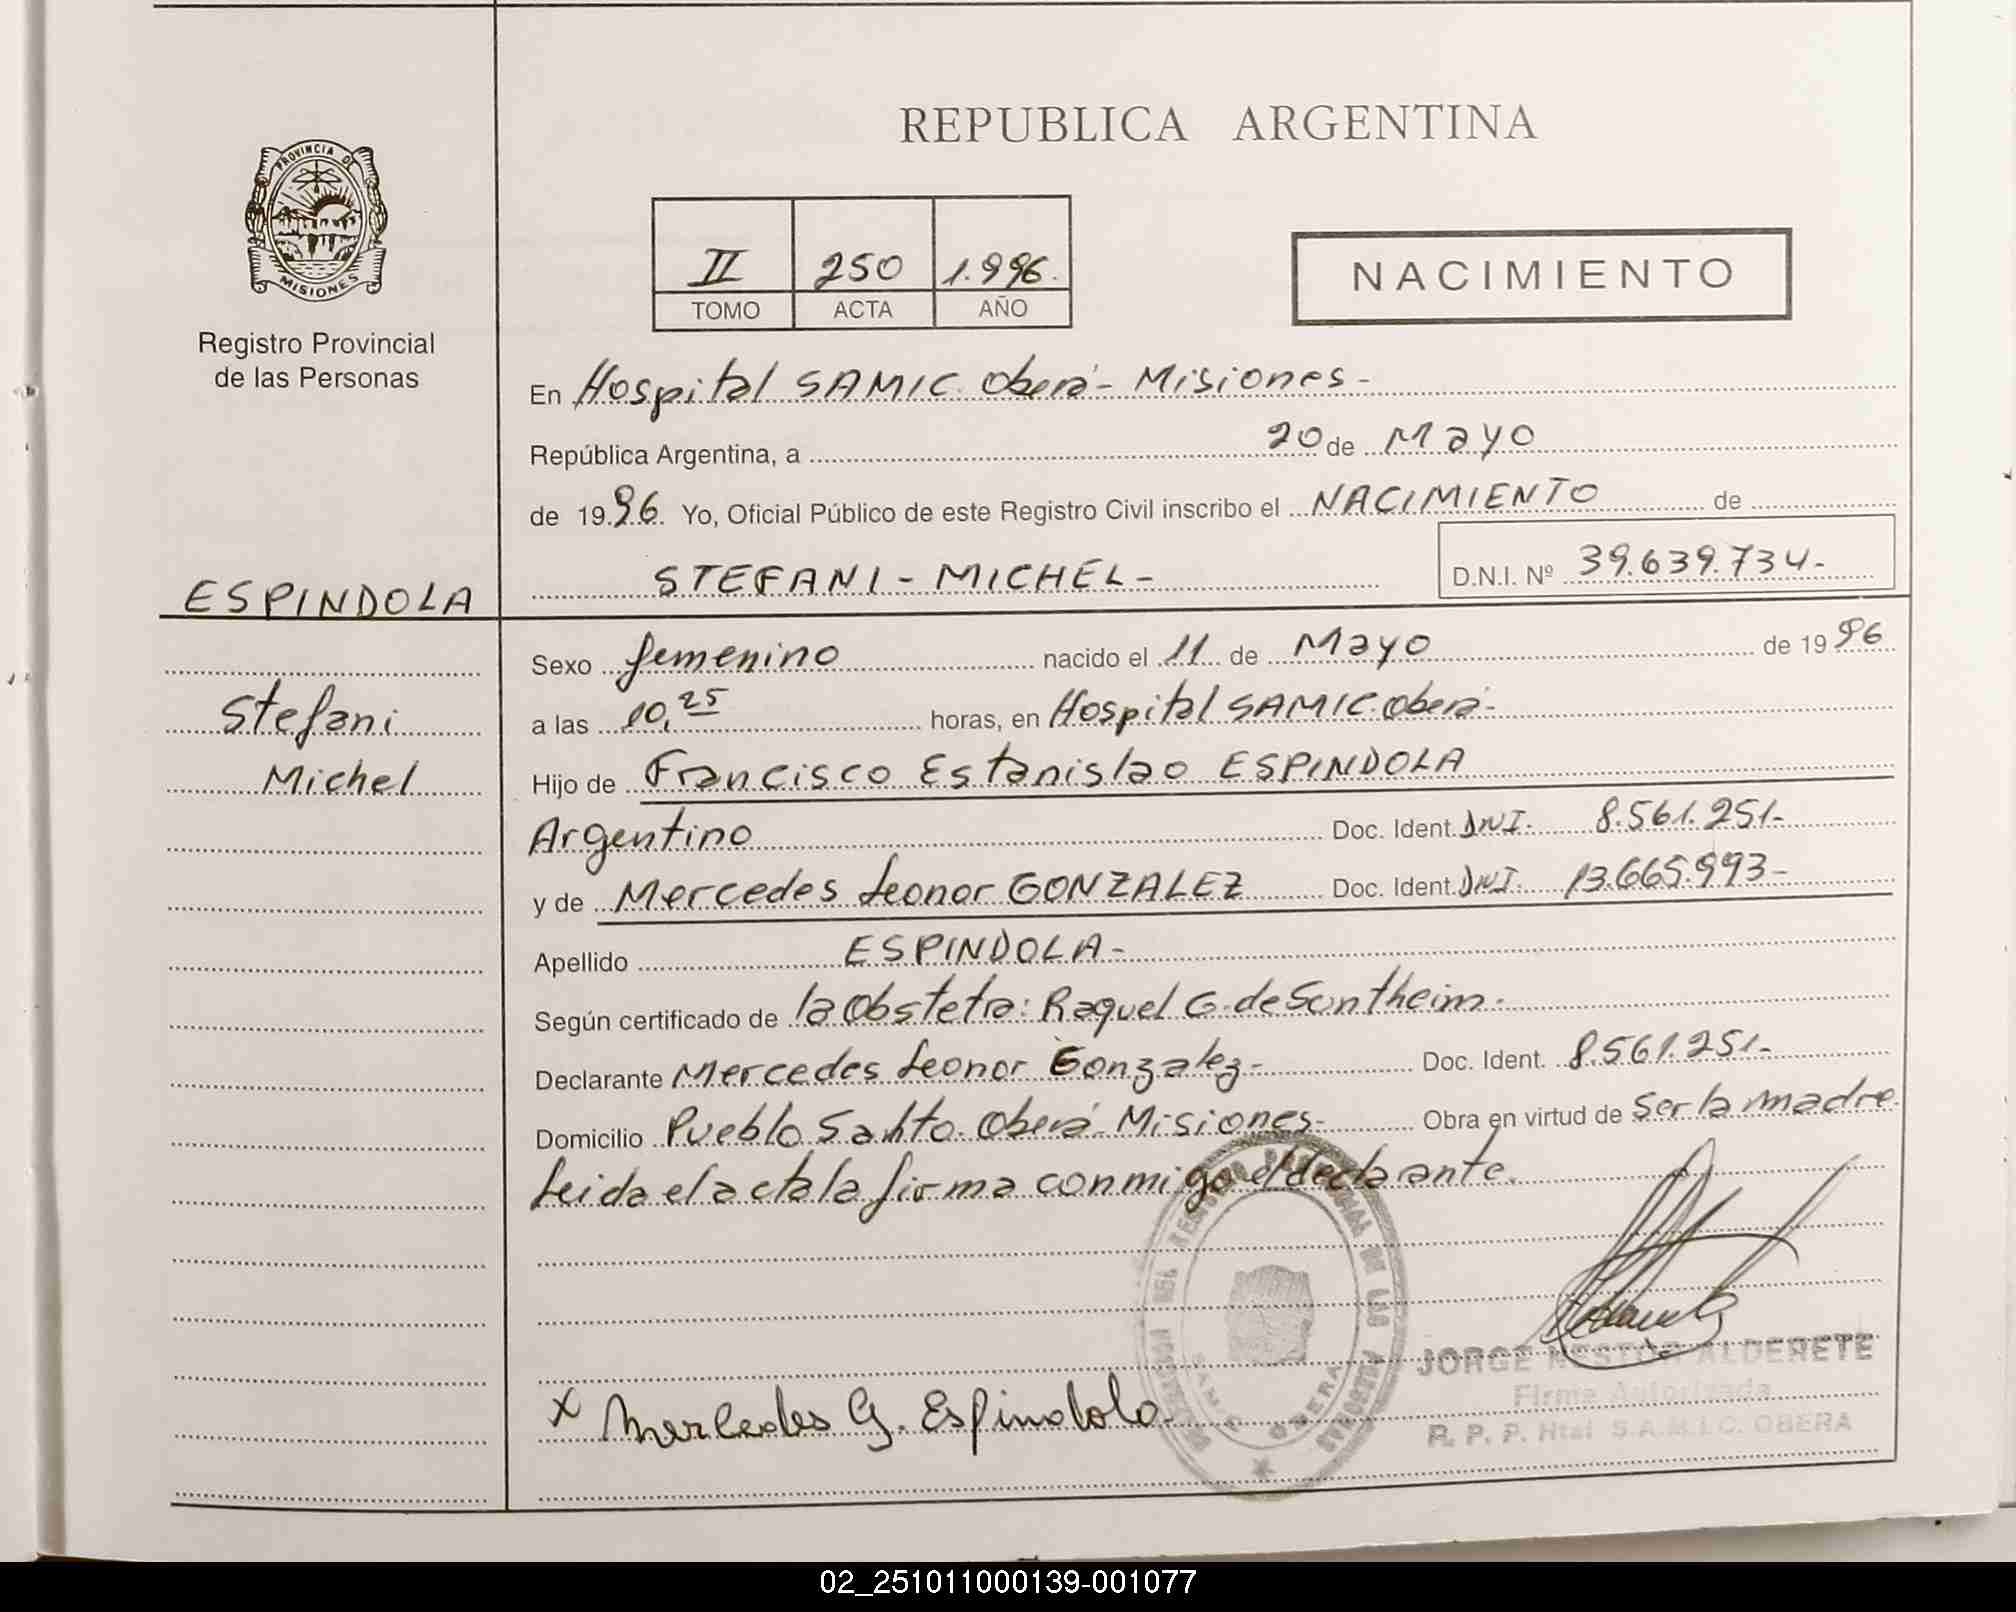 REPUBLICA ARGENTINA
PROVINCIA DE
MISIONES
Registro Provincial
de las Personas
II 250 1.996.
TOMO ACTA AÑO
NACIMIENTO
En Hospital SAMIC. Oberá - Misiones -
República Argentina, a 20 de Mayo
de 19.96. Yo, Oficial Público de este Registro Civil inscribo el NACIMIENTO de
STEFANI - MICHEL -
D.N.I. Nº 39.639.734-
ESPINDOLA
Stefani
Michel
Sexo femenino nacido el 11 de Mayo de 19 96
a las 10,25 horas, en Hospital SAMIC. Oberá -
Hijo de Francisco Estanislao ESPINDOLA
Argentino Doc. Ident. DNI. 8.561.251-
y de Mercedes Leonor GONZALEZ Doc. Ident. DNI. 13.665.993-
Apellido ESPINDOLA -
Según certificado de la Obstetra: Raquel G. de Sontheim.
Declarante Mercedes Leonor Gonzalez - Doc. Ident. 8.561.251-
Domicilio Pueblo Salto. Oberá - Misiones - Obra en virtud de Ser la madre.
Leida el acta la firma conmigo el declarante.
DE LAS PERSONAS
S.A.M.I.C. OBERA
JORGE NESTOR ALDERETE
Firma Autorizada
R. P. P. Htal S.A.M.I.C. OBERA
x Mercedes G. Espindola
02_251011000139-001077